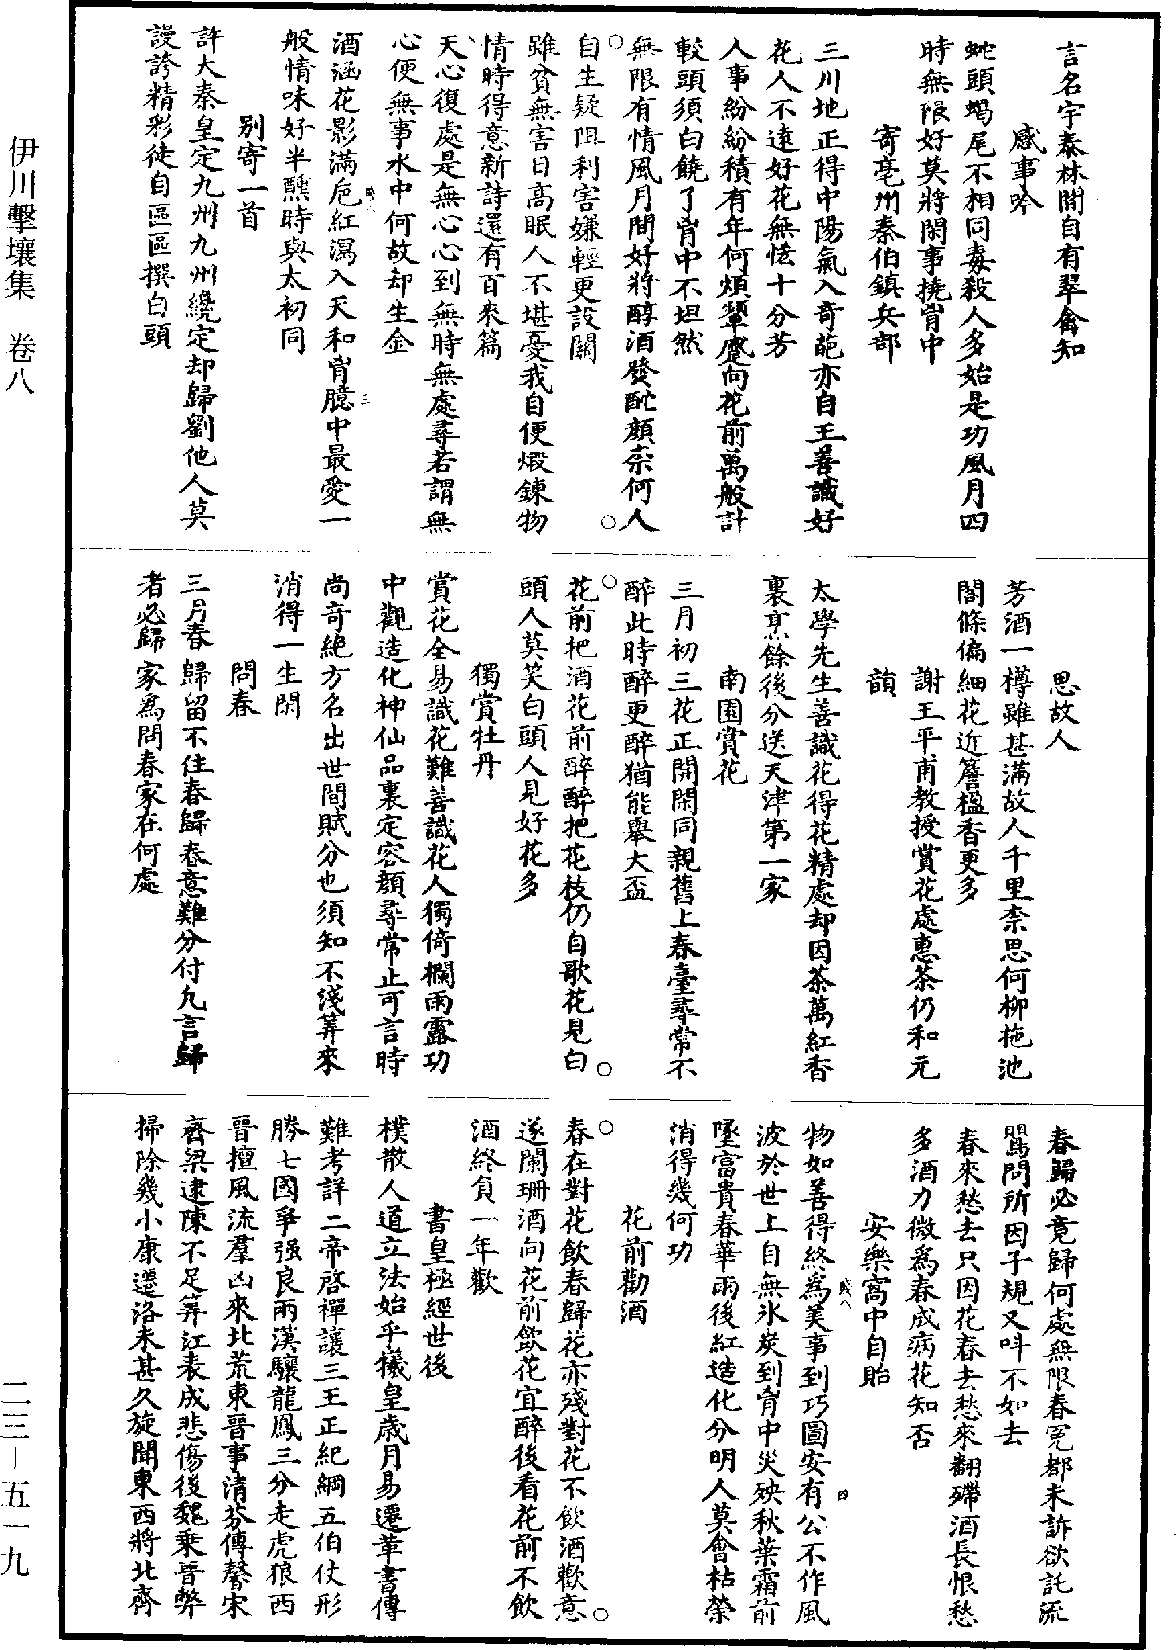 伊川擊壤集　卷八
二三—五一九
言名宇泰林間自有翠禽知
感事吟
蛇頭蝎尾不相同毒殺人多始是功風月四
時無限好莫將閑事撓胷中
寄亳州秦伯鎮兵部
三川地正得中陽氣入奇葩亦自王善識好
花人不遠好花無恡十分芳
人事紛紛積有年何煩顰蹙向花前萬般計
較頭須白饒了胷中不坦然
無限有情風月間好將醇酒發酡顏柰何人
自生疑阻利害嫌輕更設關
雖貧無害日高眠人不堪憂我自便煅鍊物
情時得意新詩還有百來篇
天心復處是無心心到無時無處尋若謂無
心便無事水中何故却生金
酒涵花影滿巵紅瀉入天和胷臆中最愛一
般情味好半醺時與太初同
別寄一首
許大秦皇定九州九州纔定却歸劉他人莫
謾誇精彩徒自區區撰白頭
思故人
芳酒一樽雖甚滿故人千里柰思何柳拖池
閣條偏細花近簷楹香更多
謝王平甫教授賞花處惠茶仍和元
韻
太學先生善識花得花精處却因茶萬紅香
裏烹餘後分送天津第一家
南園賞花
三月初三花正開閑同親舊上春臺尋常不
醉此時醉更醉猶能舉大盃
花前把酒花前醉醉把花枝仍自歌花見白
頭人莫笑白頭人見好花多
獨賞牡丹
賞花全易識花難善識花人獨倚欄雨露功
中觀造化神仙品裏定容顏尋常止可言時
尚奇絶方名出世間賦分也須知不淺筭來
消得一生閑
問春
三月春歸留不住春歸春意難分付凢言歸
者必歸家爲問春家在何處
春歸必竟歸何處無限春冤都未訴欲託流
鶯問所因子規又呌不如去
春來愁去只因花春去愁來翻殢酒長恨愁
多酒力微爲春成病花知否
安樂窩中自貽
物如善得終爲美事到巧圖安有公不作風
波於世上自無氷炭到胷中災殃秋葉霜前
墜富貴春華雨後紅造化分明人莫會枯榮
消得幾何功
花前勸酒
春在對花飲春歸花亦殘對花不飲酒歡意
遂闌珊酒向花前飲花宜醉後看花前不飲
酒終負一年歡
書皇極經世後
樸散人道立法始乎犧皇歲月易遷革書傳
難考詳二帝啓禪讓三王正紀綱五伯仗形
勝七國爭强良兩漢驤龍鳳三分走虎狼西
晉擅風流羣凶來北荒東晉事清芬傳馨宋
齊梁逮陳不足筭江表成悲傷後魏乘晉弊
掃除幾小康遷洛未甚久旋聞東西將北齊